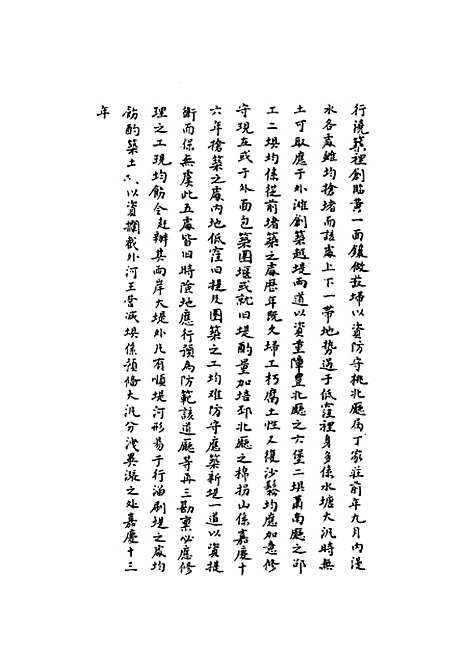 行澆築裡創貼黃一面鑲做敌埽以資防守桃北廳屬丁家莊前年九月內漫
水各處雖均搶堵而該處上下一帶地勢過于低窪裡身多係水塘大汛時無
土可取應于外灘創築越堤兩道以資重障豊北廳之六堡二埧蕭南廳之邱
工二埧均係從前堵築之處歷年既久埽工朽腐土性又復沙鬆均應加急修
守現在或于外面包築圈堰或就旧堤酌量加培邳北廳之棉拐山係嘉慶十
六年搶築之處內地低窪旧堤及圈築之工均难防守應築新堤一道以資提
衛而保無虞此五處皆旧時險地應行預為防範該道廳等再三勘稟必應修
理之工現均飭令赶辦其兩岸大堤外凡有順堤河形易于行溜刷堤之處均
飭酌築土以資攔截外河王营減埧係預備大汛分洩異漲之处嘉慶十三
年